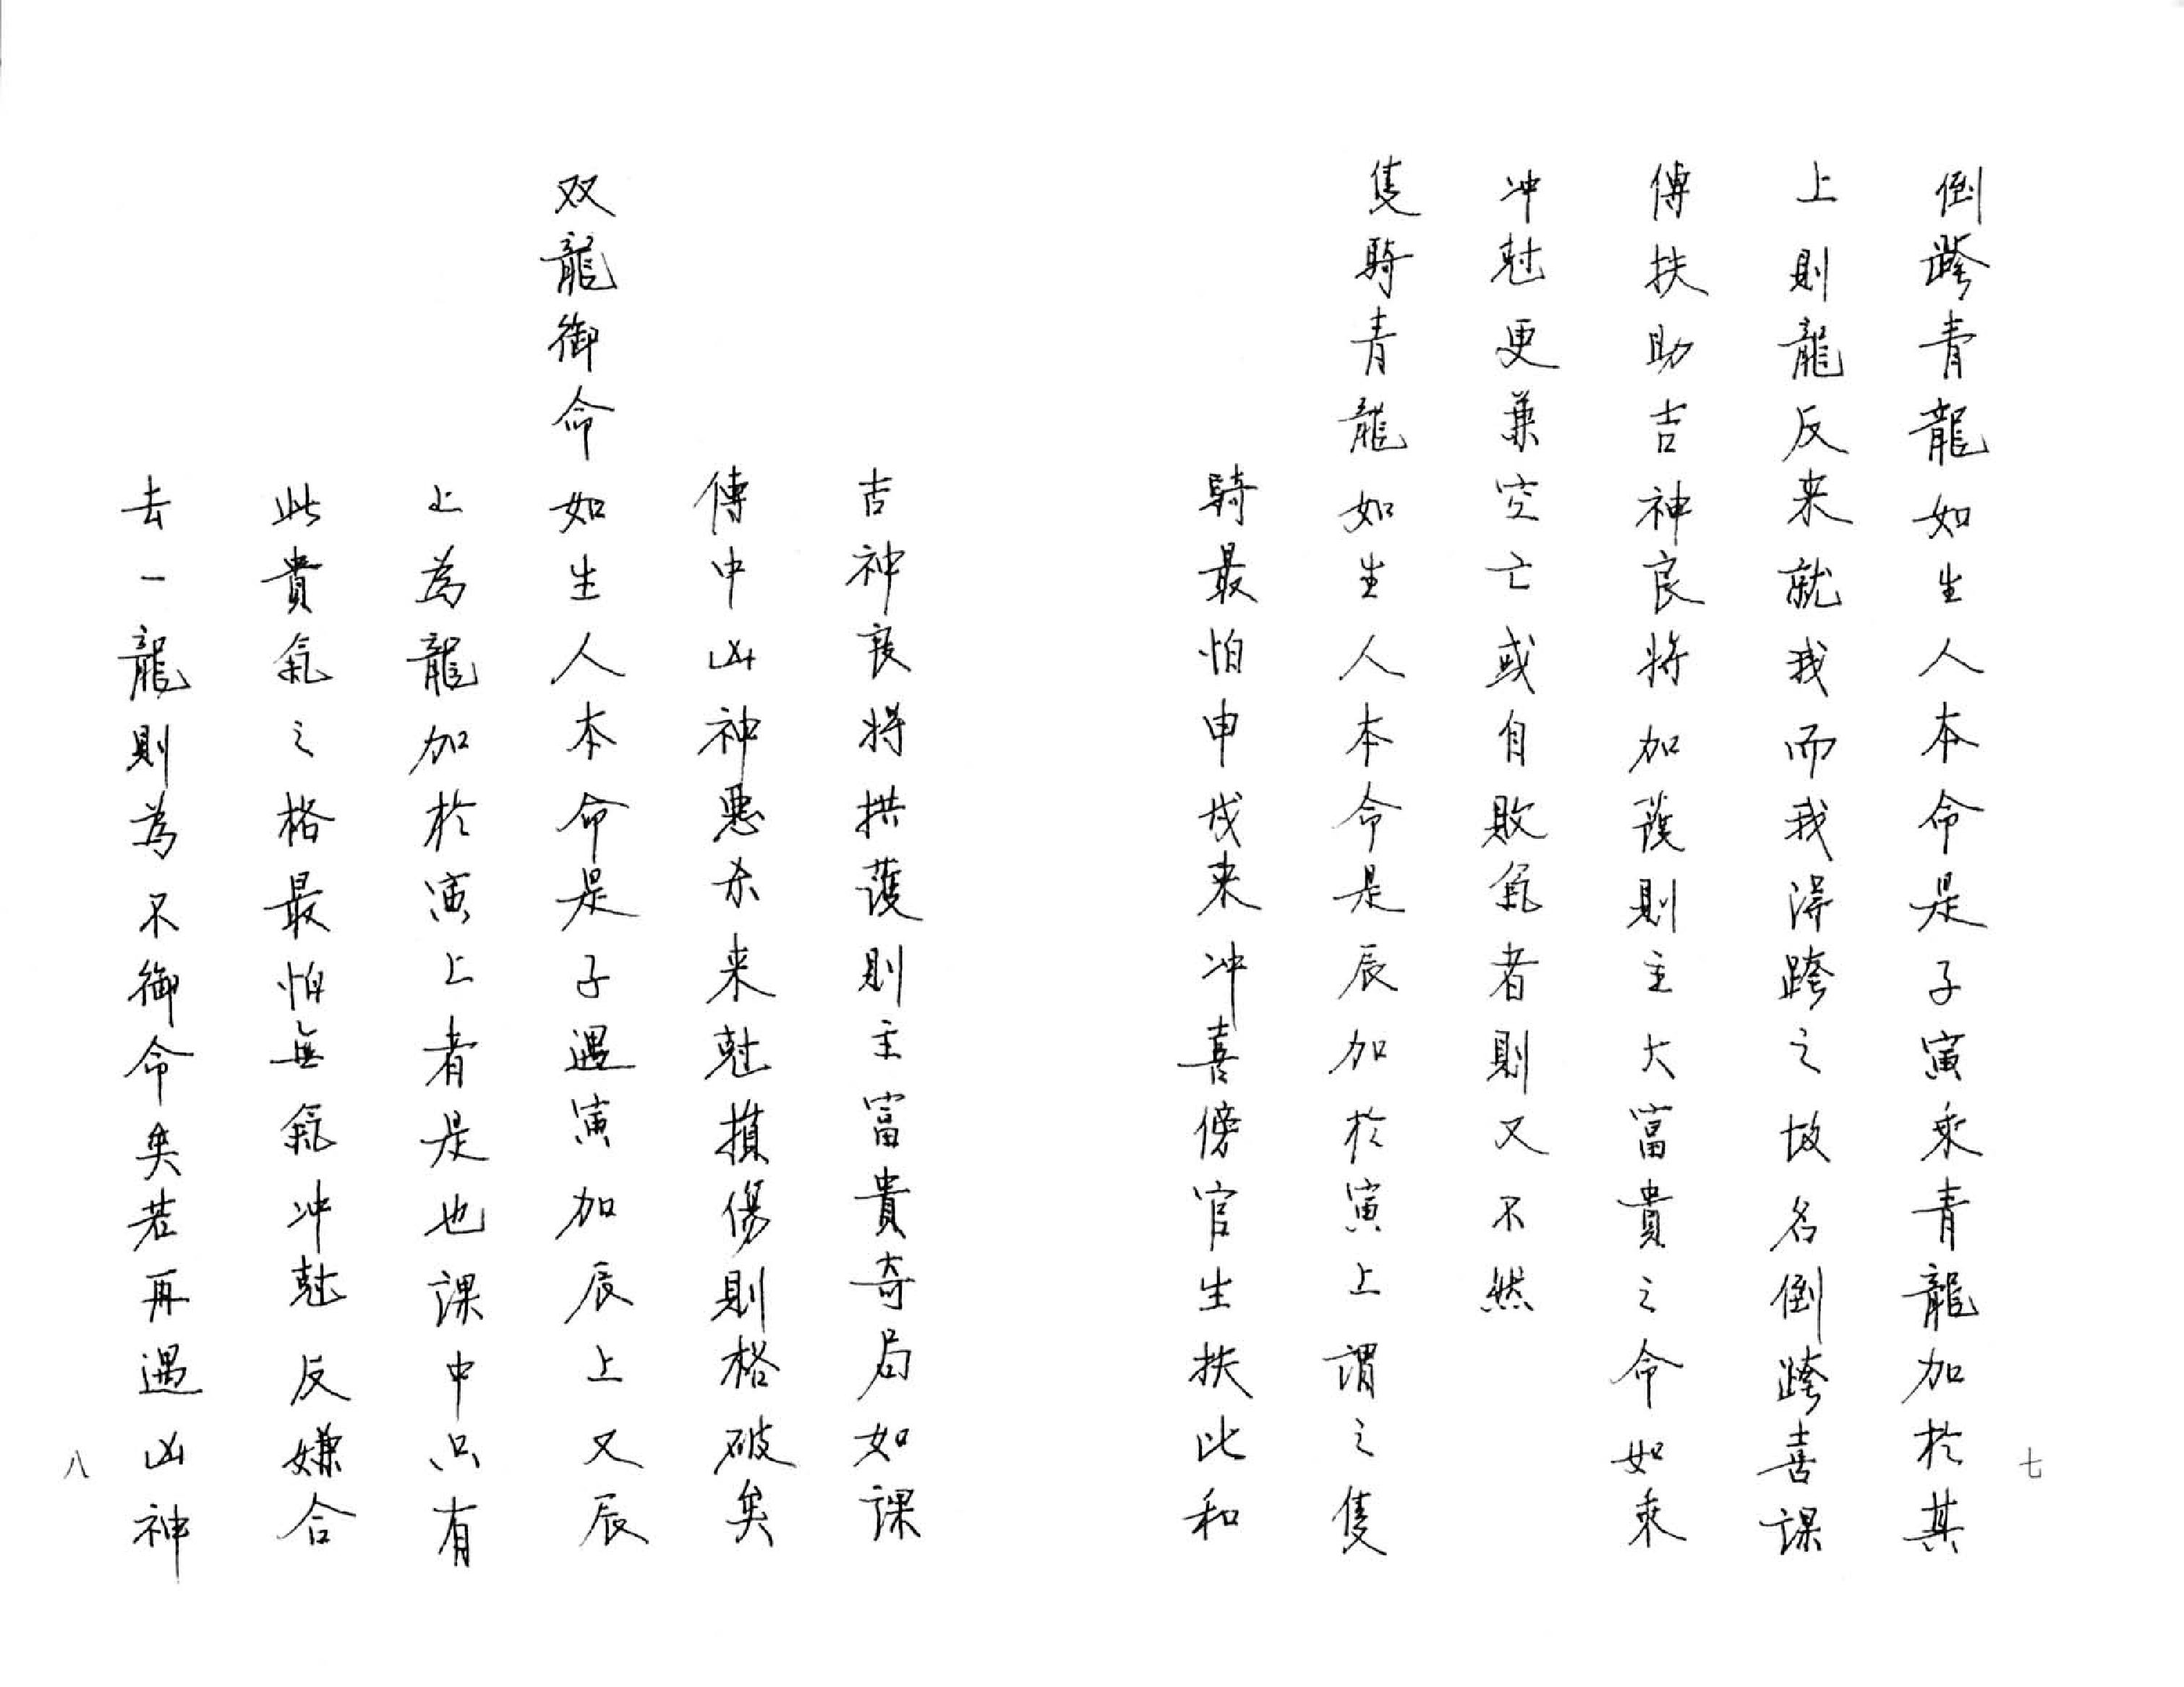 七
倒跨青龍如生人本命是子寅乘青龍加於其
上則龍反来就我而我得跨之故名倒跨喜課
傳扶助吉神良將加護則主大富貴之命如乘
冲尅更兼空亡或自敗氣者則又不然
隻騎青龍如生人本命是辰加於寅上謂之隻
騎最怕申戌来冲喜傍官生扶比和
吉神良将拱護則主富貴奇局如課
傳中凶神惡杀来尅損傷則格破矣
双龍御命如生人本命是子遇寅加辰上又辰
上為龍加於寅上者是也課中只有
此貴氣之格最怕無氣冲尅反嫌合
去一龍則為不御命矣若再遇凶神
八